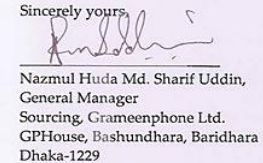 Sincerely yours,
Nazmul Huda Md. Sharif Uddin,
General Manager
Sourcing, Grameenphone Ltd.
GPHouse, Bashundhara, Baridhara
Dhaka-1229